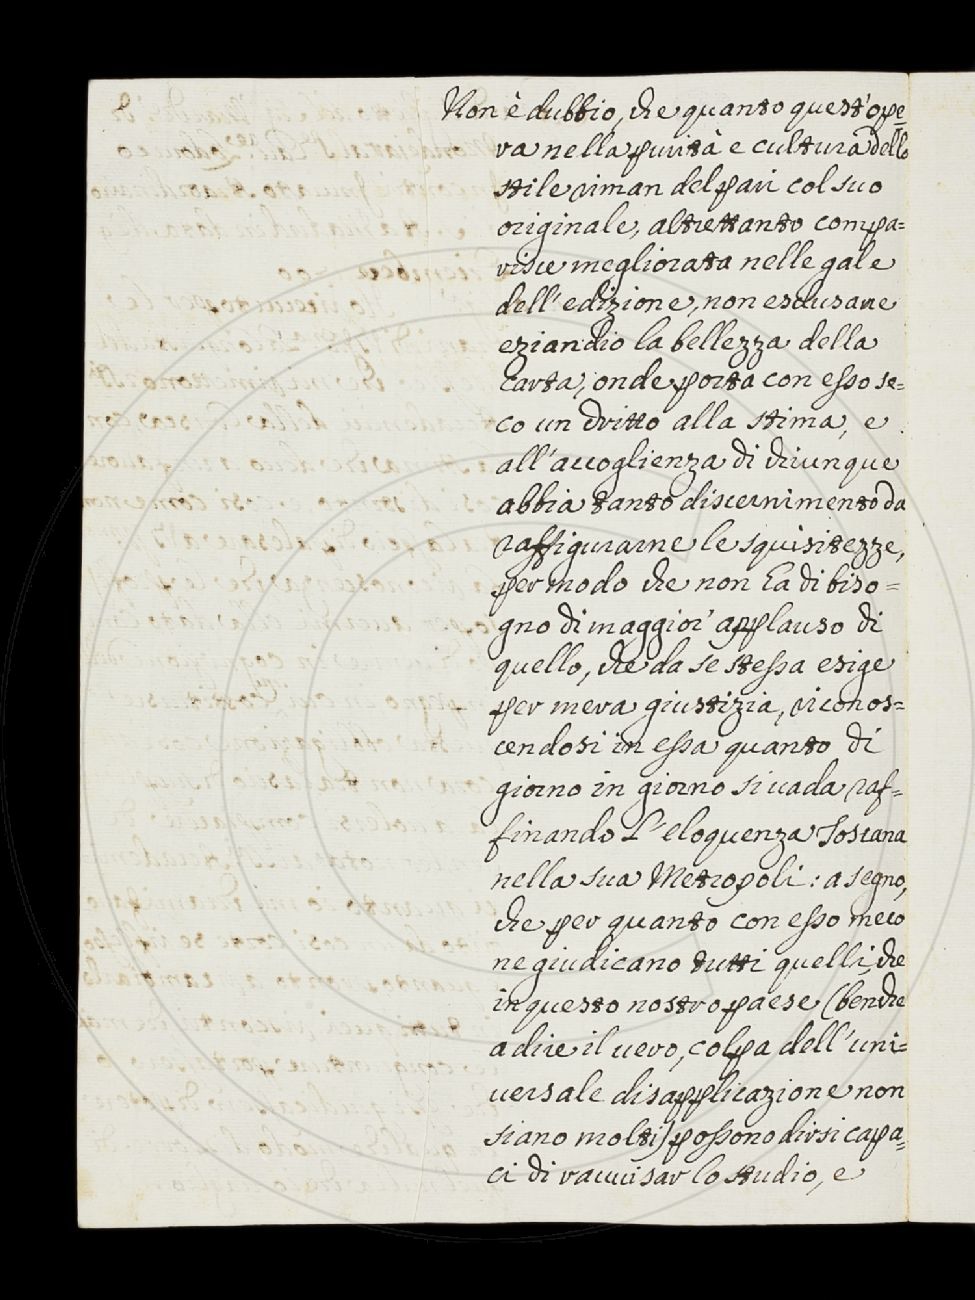 Non è dubbio, che quanto quest'ope=
ra nella purità e cultura dello
stile riman del pari col suo
originale, altrettanto compa=
risce megliorata nelle gale
dell'edizione, non escusane
eziandio la bellezza della
Carta, onde porta con esso se=
co un dritto alla stima, e
all'accoglienza di chiunque
abbia tanto discernimento da
raffigurarne le squisitezze,
per modo che non ha di biso=
gno di maggior' applauso di
quello, che da se stessa esige
per mera giustizia, riconos=
cendosi in essa quanto di
giorno in giorno si vada raf=
finando l'eloquenza Toscana
nella sua Metropoli: a segno,
che per quanto con esso meco
ne giudicano tutti quelli, che
in questo nostro paese (benche
a dire il vero, colpa dell'uni=
versale disapplicazione non
siano molti) possono dirsi capa=
ci di ravvisar lo studio, e